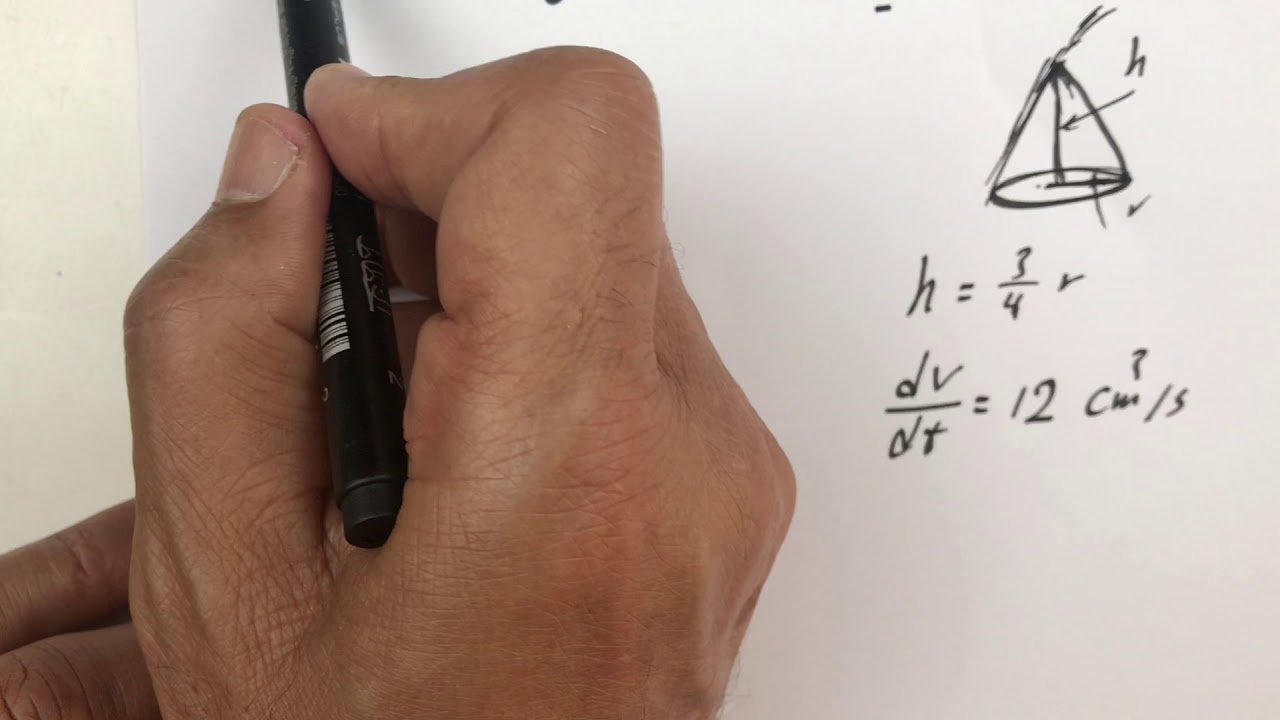 h
r
h = 3/4 r
dv/dt = 12 cm³/s